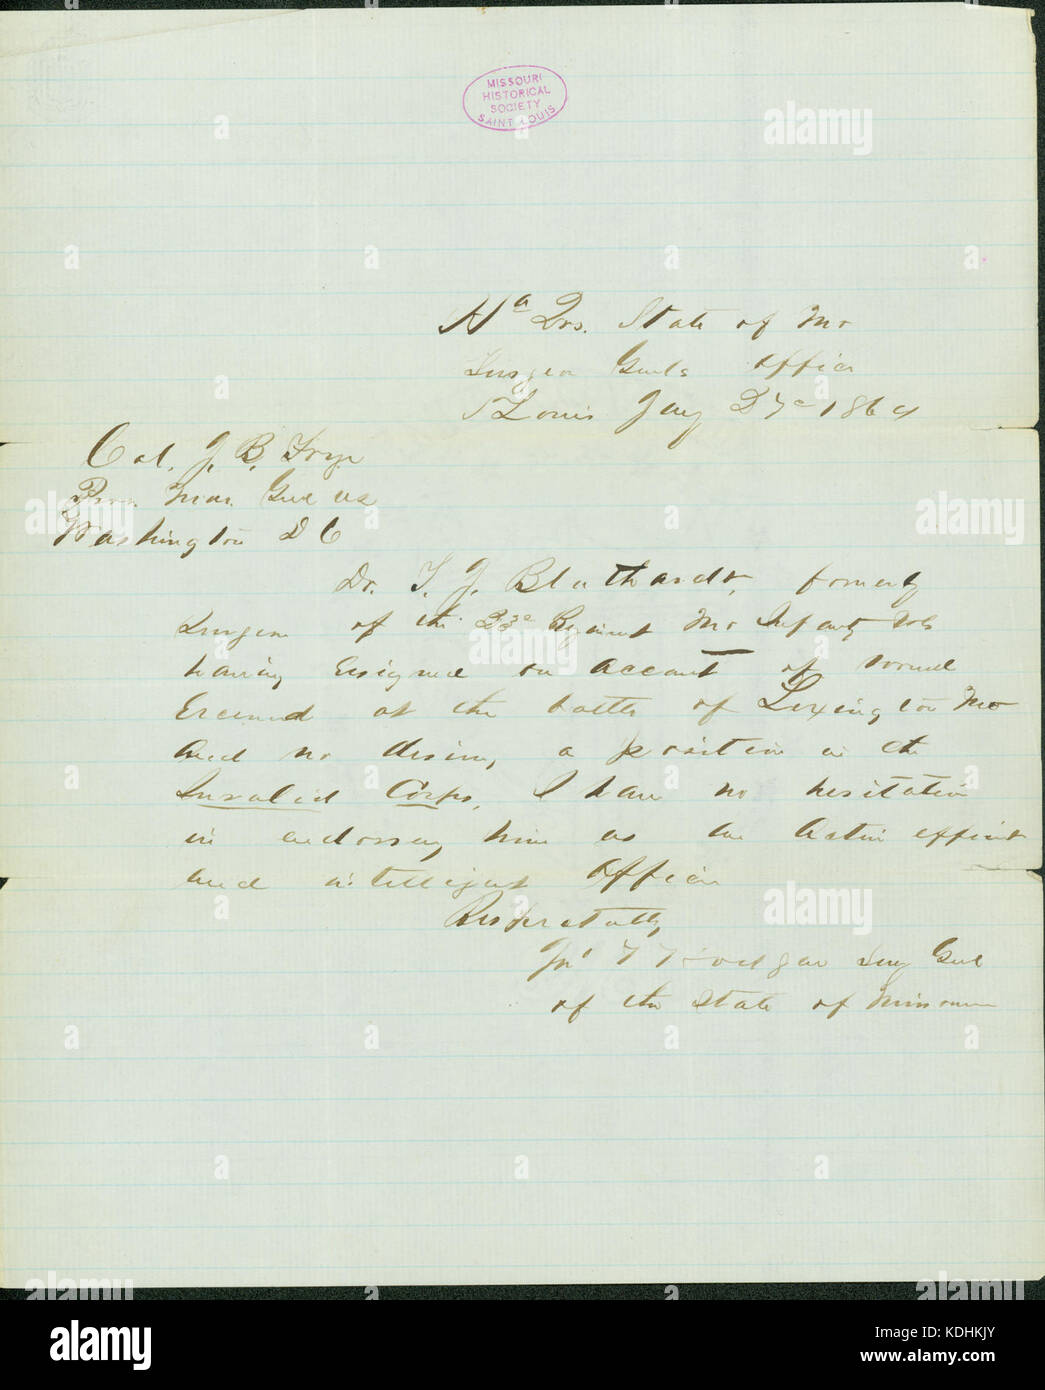 MISSOURI
HISTORICAL
SOCIETY
SAINT LOUIS
Hd Qrs. State of Mo
Surgeon Genls Office
St Louis Jany 1864
Col. J. B. Frye
Prov. Mar. Genl US
Washington D C
Dr. T. J. Bluthardt, formerly
Surgeon of the Regiment Mo Infanty Vols
having resigned on account of wound
received at the battle of Lexington Mo
and now desiring a position in the
Invalid Corps, I have no hesitation
in endorsing him as an active efficient
and intelligent officer
Respectfully
Jno T Hodgen Surg Genl
of the State of Missouri
alamy
alamy
alamy
alamy
alamy
alamy
Image ID: KDHKJY
www.alamy.com